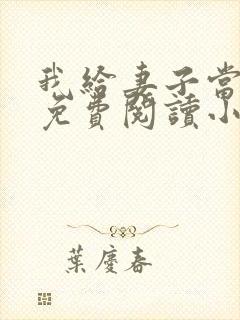 我給妻子當
免費閱讀小
葉慶春